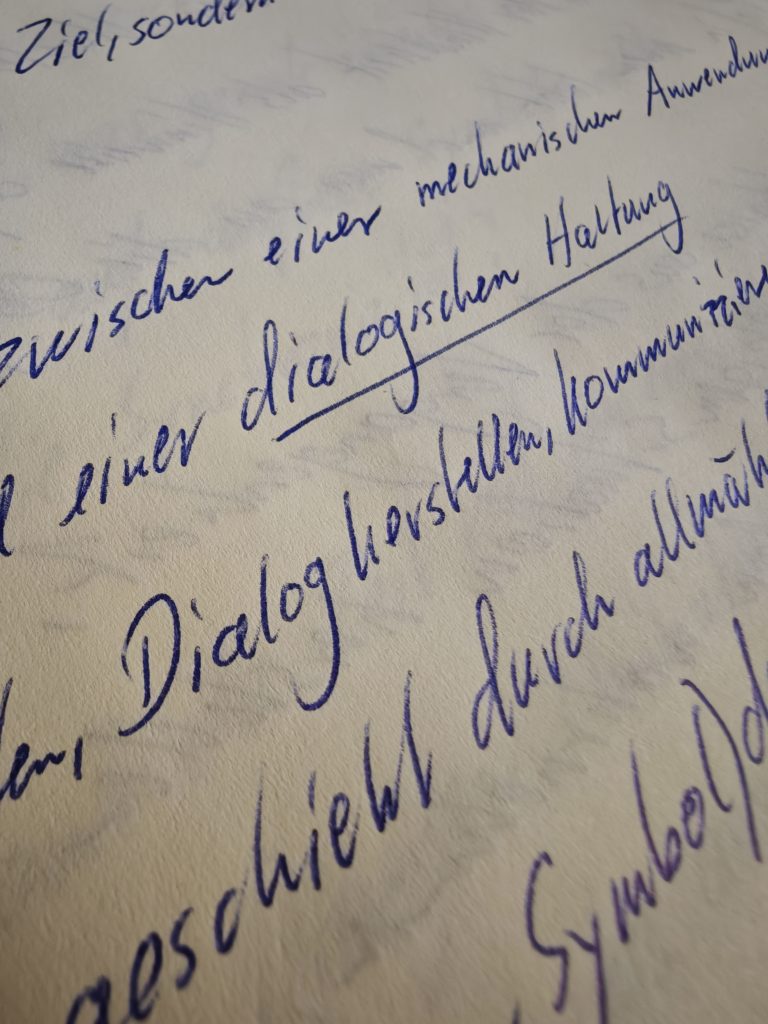 Ziel, sondern
zwischen einer mechanischen Anwendun
einer dialogischen Haltung
en, Dialog herstellen, kommunizieren
geschieht durch allmäh
Symbol) d